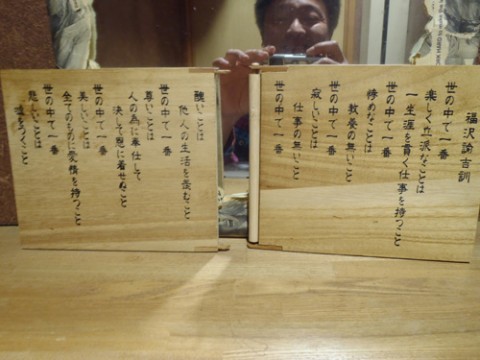 福沢諭吉訓
世の中で一番
楽しく立派なことは
一生涯を貫く仕事を持つこと
世の中で一番
惨めなことは
教養の無いこと
世の中で一番
寂しいことは
仕事の無いこと
世の中で一番
醜いことは
他人の生活を羨むこと
世の中で一番
尊いことは
人の為に奉仕して
決して恩に着せぬこと
世の中で一番
美しいことは
全てのものに愛情を持つこと
世の中で一番
悲しいことは
嘘をつくこと